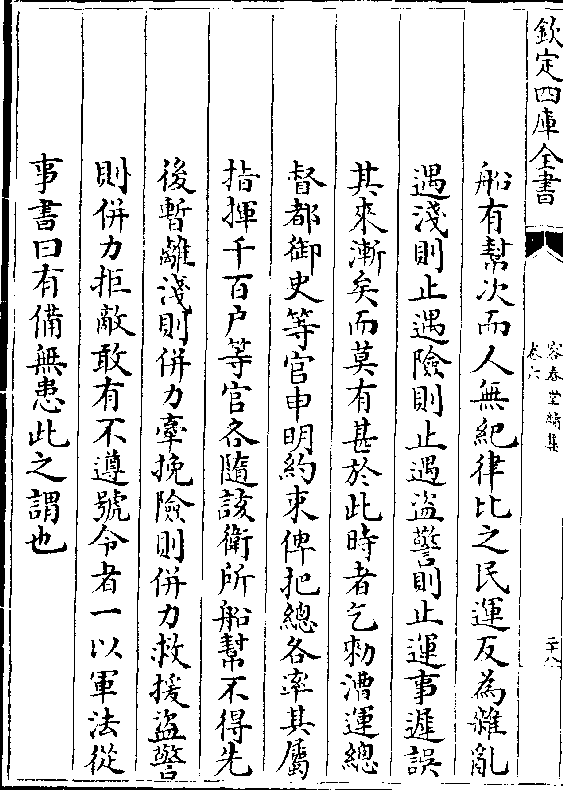 欽定四庫全書
容春堂續集
卷六
二十八
船有幫次而人無紀律比之民運反為雜亂
遇淺則止遇險則止遇盜警則止運事遲誤
其來漸矣而莫有甚於此時者乞勑漕運總
督都御史等官申明約束俾把總各率其屬
指揮千百户等官各隨該衛所船幫不得先
後暫離淺則併力牽挽險則併力救援盜警
則併力拒敵敢有不遵號令者一以軍法從
事書曰有備無患此之謂也